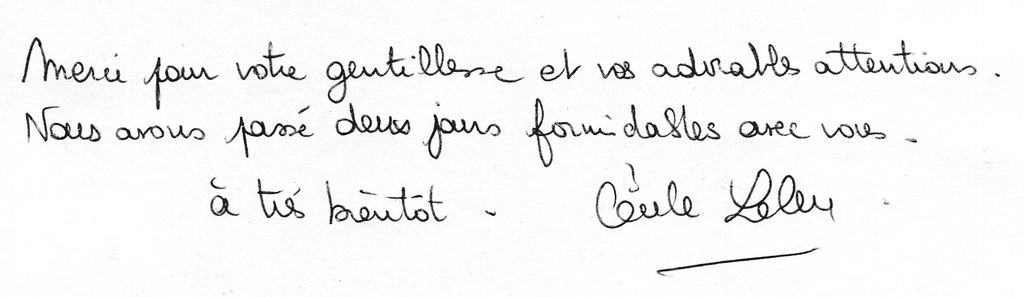 Merci pour votre gentillesse et vos adorables attentions.
Nous avons passé deux jours formidables avec vous.
à très bientôt. Cécile